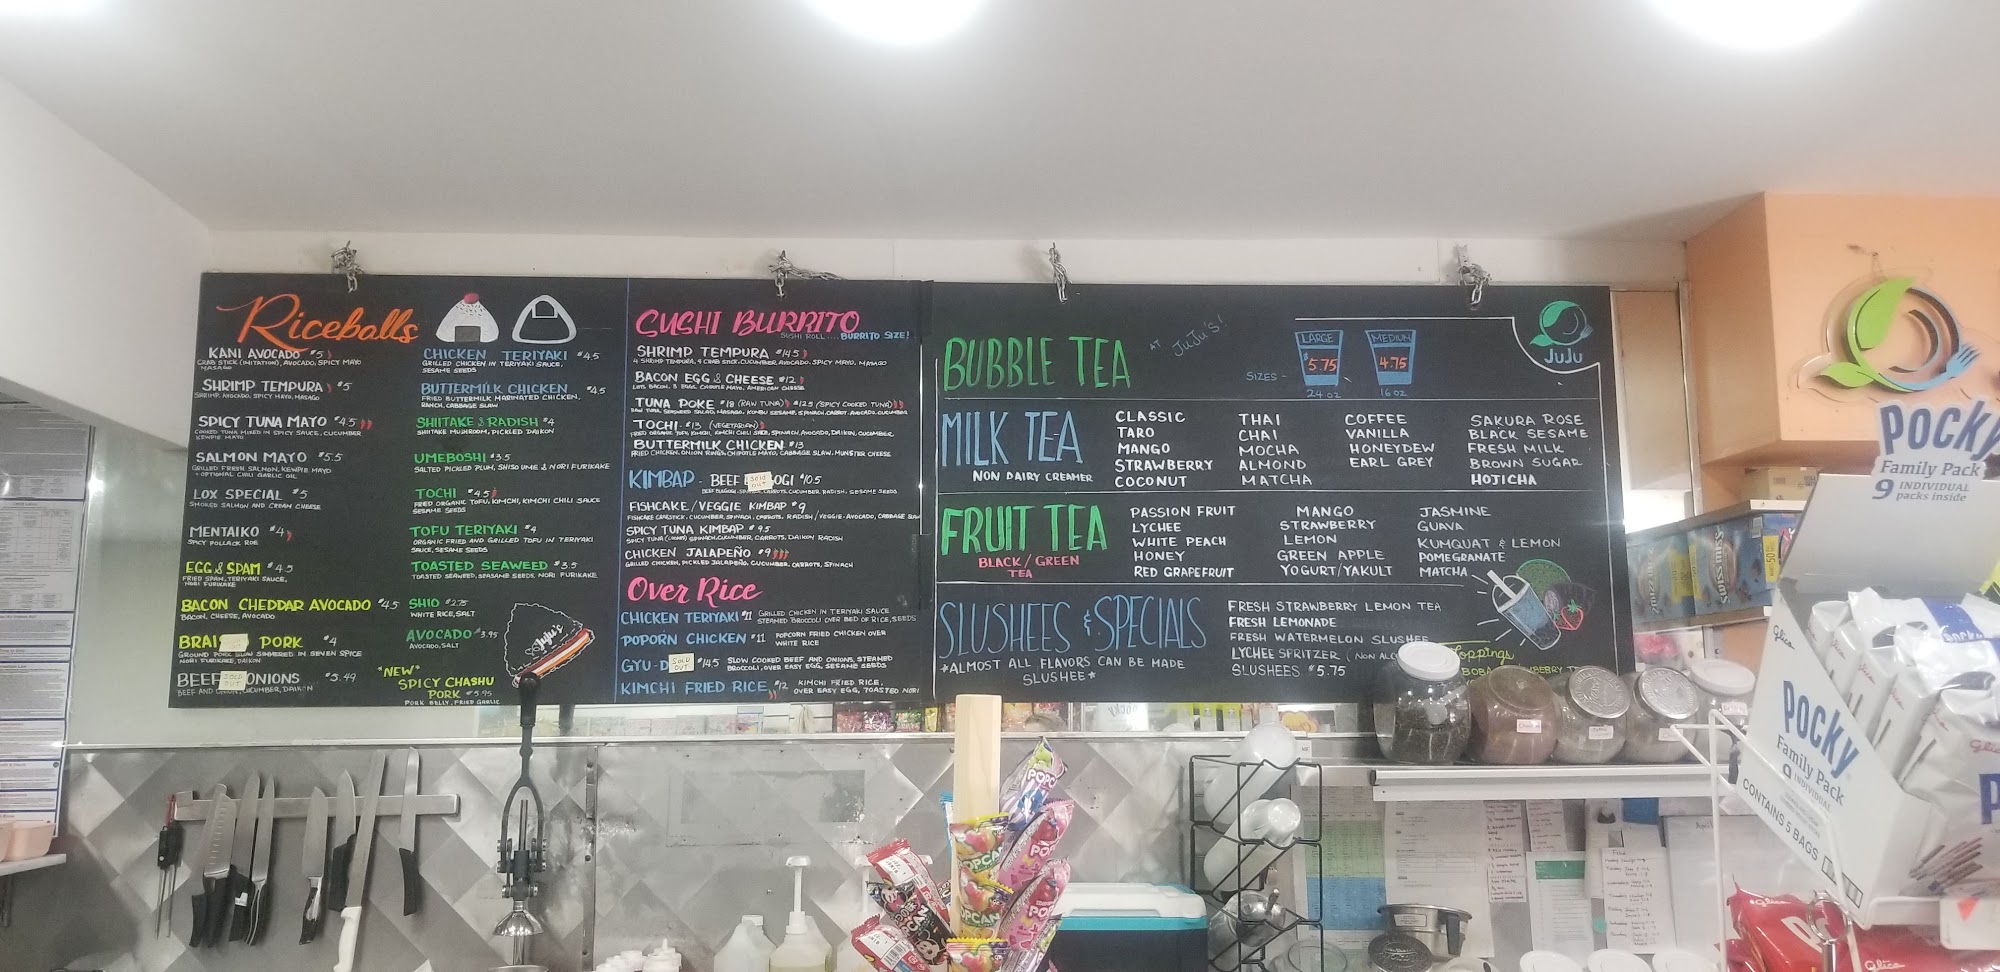 Riceballs
KANI AVOCADO $5
CRAB STICK (IMITATION), AVOCADO, SPICY MAYO
MASAGO
SHRIMP TEMPURA $5
SHRIMP, AVOCADO, SPICY MAYO, MASAGO
SPICY TUNA MAYO $4.5
COOKED TUNA MIXED IN SPICY SAUCE, CUCUMBER
KEWPIE MAYO
SALMON MAYO $5.5
GRILLED FRESH SALMON, KEWPIE MAYO
- OPTIONAL CHILI GARLIC OIL
LOX SPECIAL $5
SMOKED SALMON AND CREAM CHEESE
MENTAIKO $4
SPICY POLLACK ROE
EGG & SPAM $4.5
FRIED SPAM, TERIYAKI SAUCE,
NORI FURIKAKE
BACON CHEDDAR AVOCADO $4.5
BACON, CHEESE, AVOCADO
BRAI PORK $4
GROUND PORK SLOW SIMMERED IN SEVEN SPICE
NORI FURIKAKE, DAIKON
BEEF ONIONS $5.49
SOLD OUT
BEEF AND CUCUMBER, DAIKON
CHICKEN TERIYAKI $4.5
GRILLED CHICKEN IN TERIYAKI SAUCE,
SESAME SEEDS
BUTTERMILK CHICKEN $4.5
FRIED BUTTERMILK MARINATED CHICKEN,
RANCH, CABBAGE SLAW
SHIITAKE & RADISH $4
SHIITAKE MUSHROOM, PICKLED DAIKON
UMEBOSHI $3.5
SALTED PICKLED PLUM, SHISO UME & NORI FURIKAKE
TOCHI $4.5
FRIED ORGANIC TOFU, KIMCHI, KIMCHI CHILI SAUCE
SESAME SEEDS
TOFU TERIYAKI $4
ORGANIC FRIED AND GRILLED TOFU IN TERIYAKI
SAUCE, SESAME SEEDS
TOASTED SEAWEED $3.5
TOASTED SEAWEED, SEASAME SEEDS, NORI FURIKAKE
SHIO $2.75
WHITE RICE, SALT
AVOCADO $3.95
AVOCADO, SALT
*NEW*
SPICY CHASHU
PORK $5.95
PORK BELLY, FRIED GARLIC
JuJu's
SUSHI BURRITO
SUSHI ROLL.... BURRITO SIZE!
SHRIMP TEMPURA $14.5
4 SHRIMP TEMPURA, 4 CRAB STICK, CUCUMBER, AVOCADO, SPICY MAYO, MASAGO
BACON EGG & CHEESE $12
LOTS BACON, 3 EGGS, CHIPOTLE MAYO, AMERICAN CHEESE
TUNA POKE $18 (RAW TUNA) $12.5 (SPICY COOKED TUNA)
RAW TUNA, SEAWEED SALAD, MASAGO, KOMBU SESAME, SPINACH, CARROT, AVOCADO, CUCUMBER
TOCHI - $13 (VEGETARIAN)
FRIED ORGANIC TOFU, KIMCHI, KIMCHI CHILI SAUCE, SPINACH, AVOCADO, DAIKON, CUCUMBER
BUTTERMILK CHICKEN $13
FRIED CHICKEN, ONION RINGS, CHIPOTLE MAYO, CABBAGE SLAW, MUNSTER CHEESE
KIMBAP - BEEF OGI $10.5
SOLD OUT
BEEF BULGOGI, CARROTS, CUCUMBER, RADISH, SESAME SEEDS
FISHCAKE/VEGGIE KIMBAP $9
FISHCAKE, CRABSTICK, CUCUMBER, SPINACH, CARROTS, RADISH / VEGGIE- AVOCADO, CABBAGE SLAW
SPICY TUNA KIMBAP $9.5
SPICY TUNA (COOKED) SPINACH, CUCUMBER, CARROTS, DAIKON RADISH
CHICKEN JALAPEÑO $9
GRILLED CHICKEN, PICKLED JALAPEÑO, CUCUMBER, CARROTS, SPINACH
Over Rice
CHICKEN TERIYAKI $11 GRILLED CHICKEN IN TERIYAKI SAUCE
STEAMED BROCCOLI OVER BED OF RICE, SEEDS
POPORN CHICKEN $11 POPCORN FRIED CHICKEN OVER
WHITE RICE
GYU-D $14.5 SLOW COOKED BEEF AND ONIONS, STEAMED
SOLD OUT
BROCCOLI, OVER EASY EGG, SESAME SEEDS
KIMCHI FRIED RICE $12 KIMCHI FRIED RICE,
OVER EASY EGG, TOASTED NORI
BUBBLE TEA
AT JuJu's!
SIZES -
LARGE
$5.75
24 OZ
MEDIUM
4.75
16 OZ
JuJu
MILK TEA
NON DAIRY CREAMER
CLASSIC
TARO
MANGO
STRAWBERRY
COCONUT
THAI
CHAI
MOCHA
ALMOND
MATCHA
COFFEE
VANILLA
HONEYDEW
EARL GREY
SAKURA ROSE
BLACK SESAME
FRESH MILK
BROWN SUGAR
HOJICHA
FRUIT TEA
BLACK/GREEN
TEA
PASSION FRUIT
LYCHEE
WHITE PEACH
HONEY
RED GRAPEFRUIT
MANGO
STRAWBERRY
LEMON
GREEN APPLE
YOGURT/YAKULT
JASMINE
GUAVA
KUMQUAT & LEMON
POMEGRANATE
MATCHA
SLUSHEES & SPECIALS
*ALMOST ALL FLAVORS CAN BE MADE
SLUSHEE*
FRESH STRAWBERRY LEMON TEA
FRESH LEMONADE
FRESH WATERMELON SLUSHEE
LYCHEE SPRITZER (NON ALCO
SLUSHEES $5.75
Toppings
BOBA
POCKY
Family Pack
9 INDIVIDUAL
packs inside
Glico
POCKY
Family Pack
9 INDIVIDUAL
CONTAINS 5 BAGS